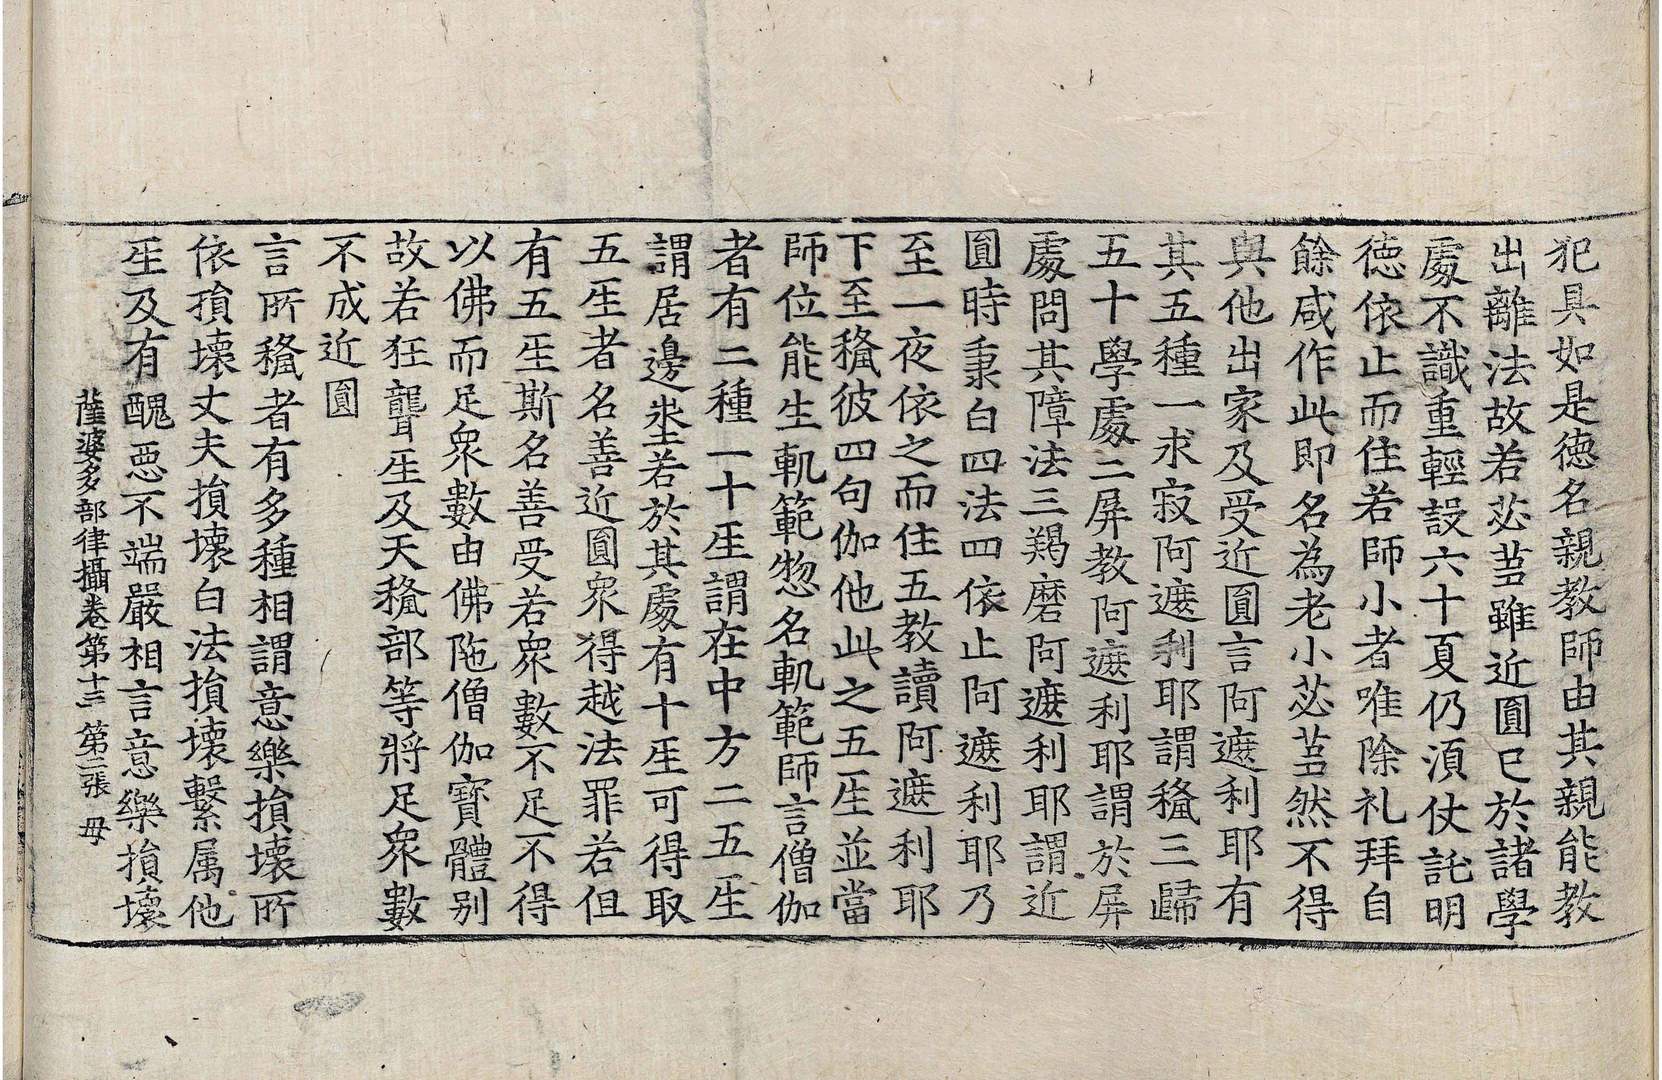 犯具如是德名親教師由其親能教
出離法故若苾蒭雖近圓已於諸學
處不識重輕設六十夏仍湏仗託明
德依止而住若師小者唯除礼拜自
餘咸作此即名為老小苾蒭然不得
與他出家及受近圓言阿遮利耶有
其五種一求寂阿遮利耶謂授三歸
五十學處二屏教阿遮利耶謂於屏
處問其障法三羯磨阿遮利耶謂近
圓時秉白四法四依止阿遮利耶乃
至一夜依之而住五教讀阿遮利耶
下至授彼四句伽他此之五生並當
師位能生軌範惣名軌範師言僧伽
者有二種一十生謂在中方二五生
謂居邊坐若於其處有十生可得取
五生者名善近圓眾得越法罪若但
有五生斯名善受若眾數不足不得
以佛而足眾數由佛陁僧伽寶體别
故若狂聾生及天授部等將足眾數
不成近圓
言所授者有多種相謂意樂損壞所
依損壞丈夫損壞白法損壞繫属他
生及有醜惡不端嚴相言意樂損壞
薩婆多部律攝卷第十三 第二張 母